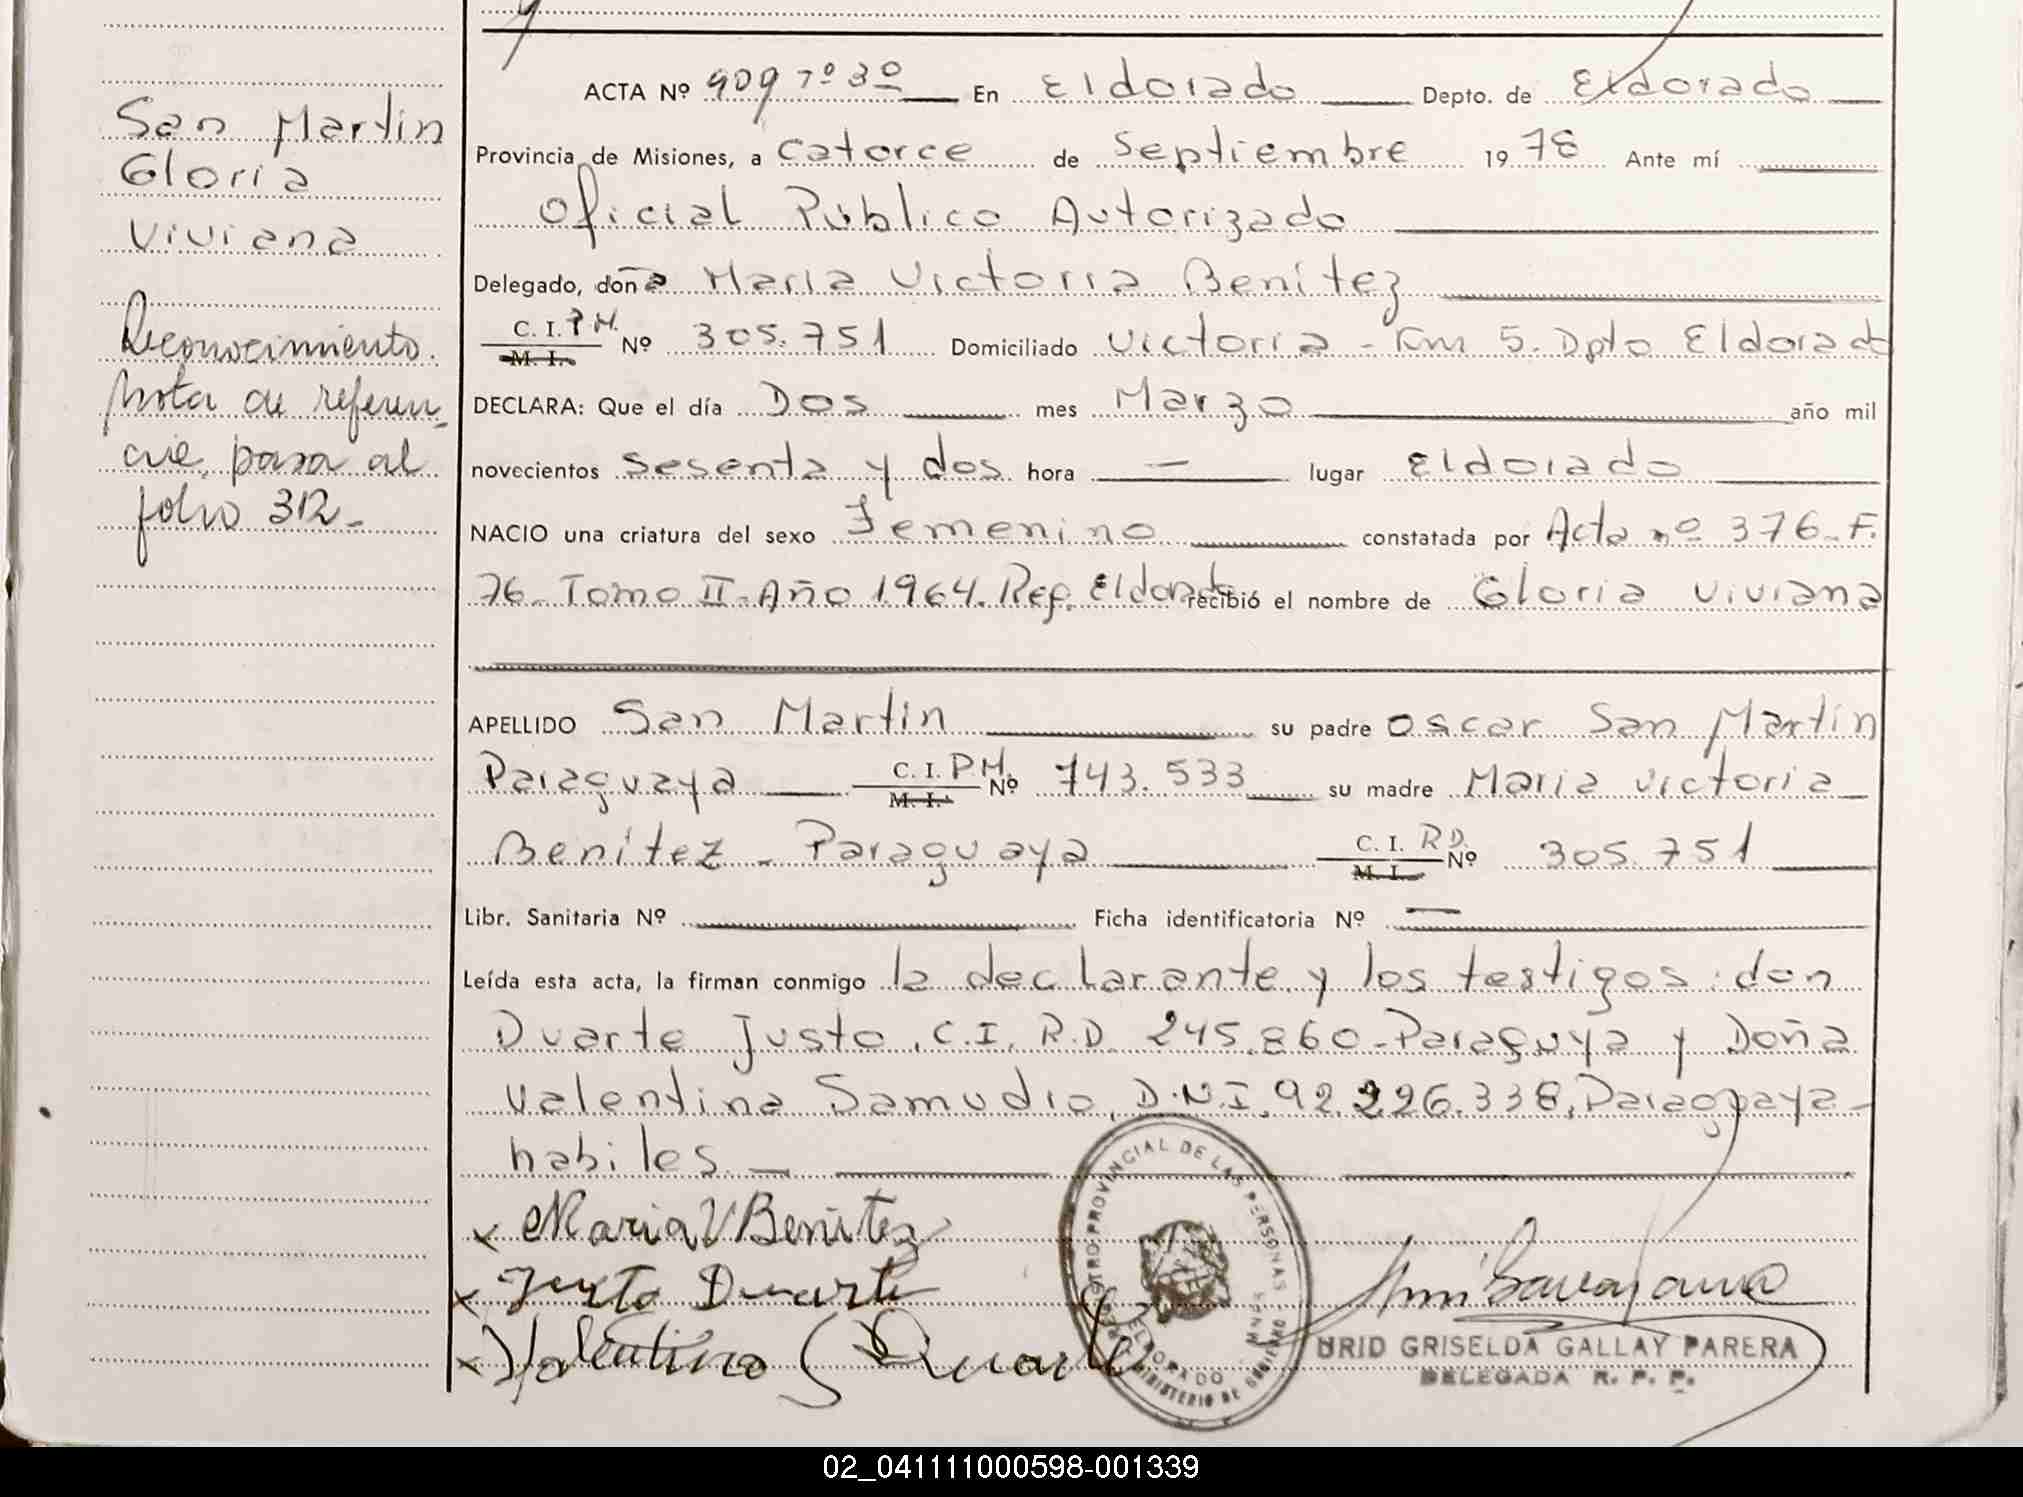 San Martin
Gloria
Viviana
Reconocimiento.
Nota de referen-
cia, pasa al
folio 312.-
ACTA Nº 909 Tº 3º En Eldorado Depto. de Eldorado
Provincia de Misiones, a catorce de Septiembre 1978 Ante mí
Oficial Público Autorizado
Delegado, doña Maria Victoria Benitez
C. I. P.M.
M. I. Nº 305.751 Domiciliado Victoria - Km 5. Dpto Eldorado
DECLARA: Que el día Dos mes Marzo año mil
novecientos sesenta y dos hora — lugar Eldorado
NACIO una criatura del sexo Femenino constatada por Acta nº 376-F.
76- Tomo II- Año 1964. Rep. Eldorado recibió el nombre de Gloria Viviana
APELLIDO San Martin su padre Oscar San Martin
Paraguaya C. I. P.M. Nº 743.533 su madre Maria Victoria
M. I.
Benitez - Paraguaya C. I. R.D. Nº 305.751
M. I.
Libr. Sanitaria Nº Ficha identificatoria Nº —
Leída esta acta, la firman conmigo la declarante y los testigos: don
Duarte Justo, C.I. R.D. 245.860-Paraguaya y Doña
Valentina Samudio, D.N.I. 92.226.338, Paraguaya-
habiles.-
x Maria V Benitez
x Justo Duarte
x Valentina S D Duarte
REGISTRO PROVINCIAL DE LAS PERSONAS
ELDORADO
MINISTERIO DE GOBIERNO
URID GRISELDA GALLAY PARERA
DELEGADA R. P. P.
02_041111000598-001339